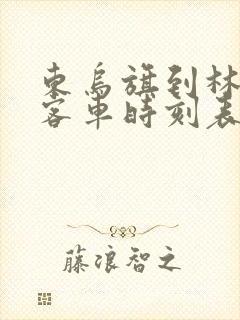 東烏旗到林
客車時刻表
藤浪智之